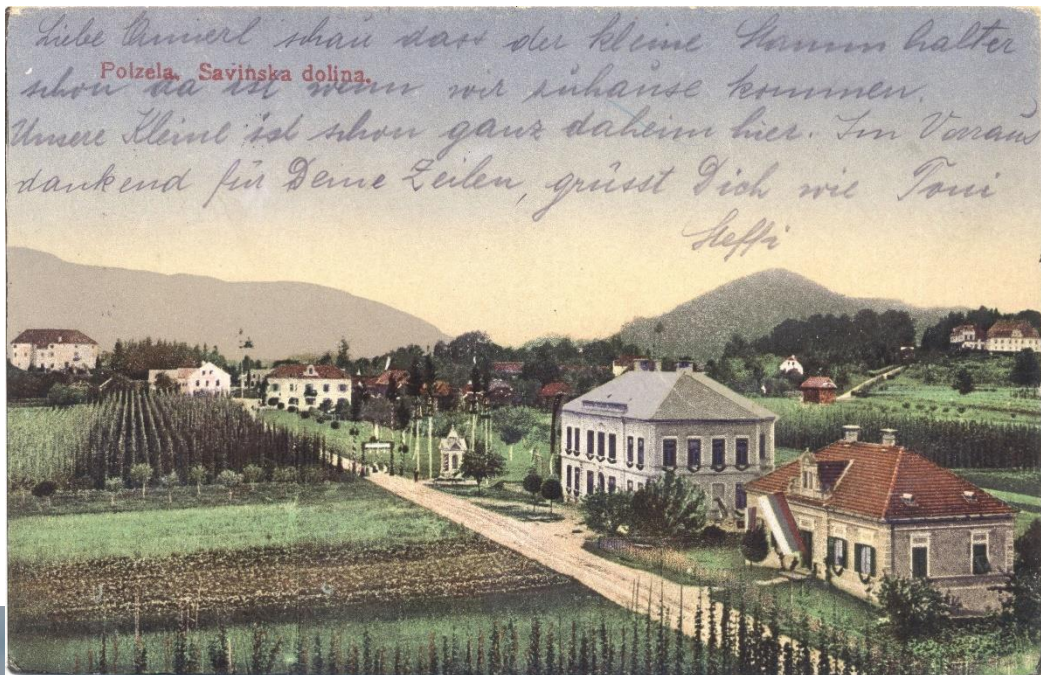 Liebe Annerl schau dass der kleine Stammhalter
Polzela. Savinska dolina.
schon da ist wenn wir zuhause kommen.
Unsere Kleine ist schon ganz daheim hier. Im Vorraus
dankend für Deine Zeilen, grüsst Dich wie Toni
Steffi